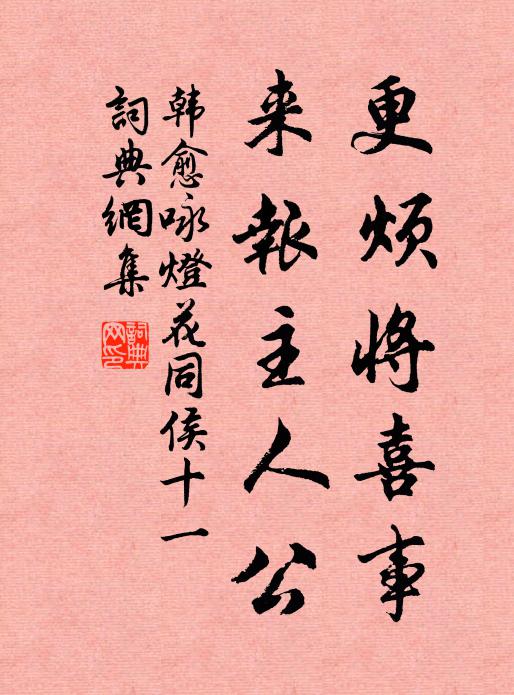 更煩將喜事
来報主人公
韩愈咏燈花同侯十一
詞典網集
詞典网印